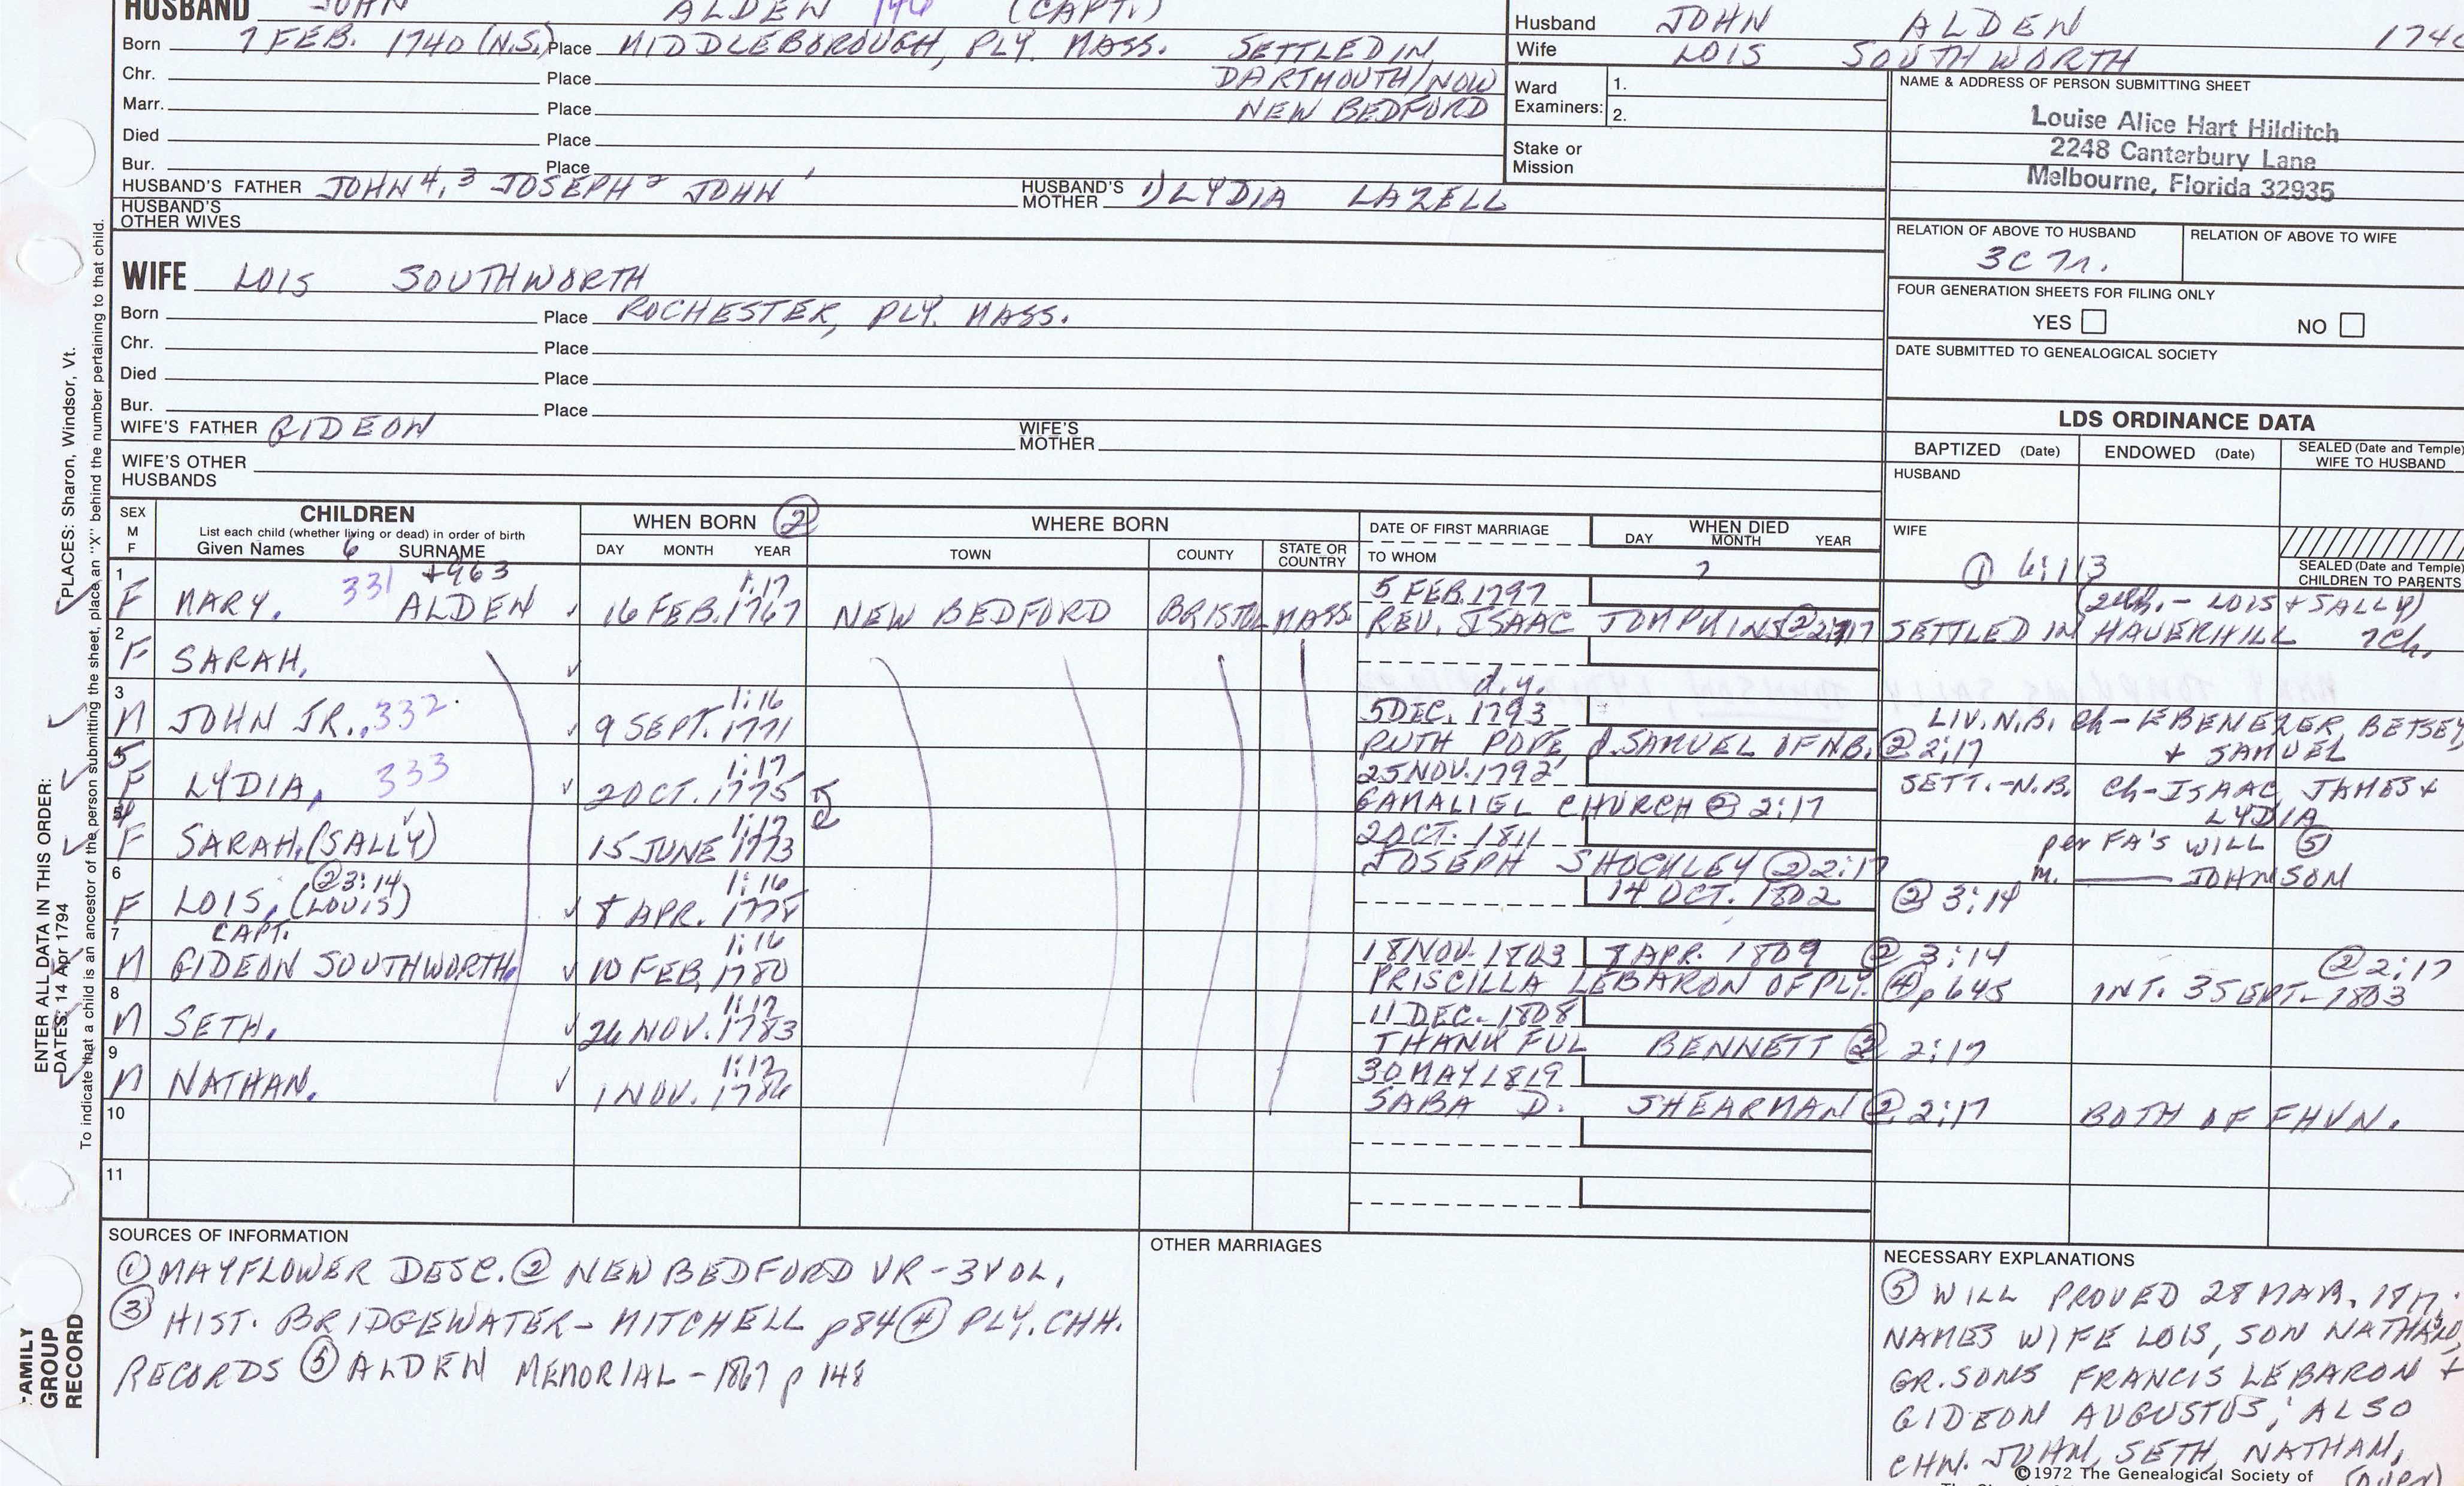 HUSBAND JOHN ALDEN 146 (CAPT.)
Born 7 FEB. 1740 (N.S.) Place MIDDLEBOROUGH, PLY. MASS. SETTLED IN
Chr. Place DARTMOUTH/NOW
Marr. Place NEW BEDFORD
Died Place
Bur. Place
HUSBAND'S FATHER JOHN 4, 3 JOSEPH 2 JOHN 1 HUSBAND'S MOTHER 1) LYDIA LAZELL
HUSBAND'S OTHER WIVES
Husband JOHN ALDEN 1740
Wife LOIS SOUTHWORTH
Ward Examiners: 1.
2.
Stake or Mission
NAME & ADDRESS OF PERSON SUBMITTING SHEET
Louise Alice Hart Hilditch
2248 Canterbury Lane
Melbourne, Florida 32935
RELATION OF ABOVE TO HUSBAND RELATION OF ABOVE TO WIFE
3C 7r.
FOUR GENERATION SHEETS FOR FILING ONLY
YES NO
DATE SUBMITTED TO GENEALOGICAL SOCIETY
WIFE LOIS SOUTHWORTH
Born Place ROCHESTER, PLY. MASS.
Chr. Place
Died Place
Bur. Place
WIFE'S FATHER GIDEON WIFE'S MOTHER
WIFE'S OTHER HUSBANDS
LDS ORDINANCE DATA
BAPTIZED (Date) ENDOWED (Date) SEALED (Date and Temple) WIFE TO HUSBAND
HUSBAND
WIFE
① 6:113
SEALED (Date and Temple) CHILDREN TO PARENTS
SEX M F CHILDREN WHEN BORN ② WHERE BORN DATE OF FIRST MARRIAGE WHEN DIED
List each child (whether living or dead) in order of birth
Given Names 6 SURNAME DAY MONTH YEAR TOWN COUNTY STATE OR COUNTRY TO WHOM DAY MONTH YEAR
1 331 +963 1:17 5 FEB. 1797 (2 ch. - LOIS + SALLY)
F MARY. ALDEN 16 FEB. 1767 NEW BEDFORD BRISTOL MASS. REV. ISAAC TOMPKINS ② 2:17 SETTLED IN HAVERHILL 7 Ch.
2
F SARAH.
d.y.
3 1:16 5 DEC. 1793 LIV. N.B. Ch- EBENEZER, BETSEY
M JOHN JR. 332 9 SEPT. 1771 RUTH POPE, d. SAMUEL OF N.B. ② 2:17 + SAMUEL
5 1:17 25 NOV. 1792 SETT.-N.B. Ch-ISAAC, JAMES +
F LYDIA, 333 2 OCT. 1775 GAMALIEL CHURCH ② 2:17 LYDIA
4 1:17 2 OCT. 1811 per FA'S WILL ⑤
F SARAH, (SALLY) 15 JUNE 1773 JOSEPH SHOCKLEY ② 2:17 m. JOHNSON
6 ② 3:14 1:16 14 OCT. 1802 ② 3:14
F LOIS, (LOUIS) 8 APR. 1778
7 CAPT. 1:16 18 NOV. 1803 8 APR. 1809 ② 3:14 ② 2:17
M GIDEON SOUTHWORTH, 10 FEB. 1780 PRISCILLA LEBARON OF PLY. ④ p 645 INT. 3 SEPT. 1803
8 1:17 11 DEC. 1808
M SETH. 26 NOV. 1783 THANKFUL BENNETT ② 2:17
9 1:17 30 MAY 1819
M NATHAN. 1 NOV. 1786 SABA D. SHEARMAN ② 2:17 BOTH OF FHVN.
10
11
SOURCES OF INFORMATION
① MAYFLOWER DESC. ② NEW BEDFORD VR - 3 VOL.
③ HIST. BRIDGEWATER - MITCHELL p84 ④ PLY. CHH.
RECORDS ⑤ ALDEN MEMORIAL - 1867 p 148
OTHER MARRIAGES
NECESSARY EXPLANATIONS
⑤ WILL PROVED 28 MAR.
NAMES WIFE LOIS, SON NATHAN,
GR. SONS FRANCIS LEBARON +
GIDEON AUGUSTUS; ALSO
CHN. JOHN, SETH, NATHAN,
(over)
©1972 The Genealogical Society of
ENTER ALL DATA IN THIS ORDER:
DATES: 14 Apr 1794 PLACES: Sharon, Windsor, Vt.
To indicate that a child is an ancestor of the person submitting the sheet, place an "X" behind the number pertaining to that child.
FAMILY GROUP RECORD